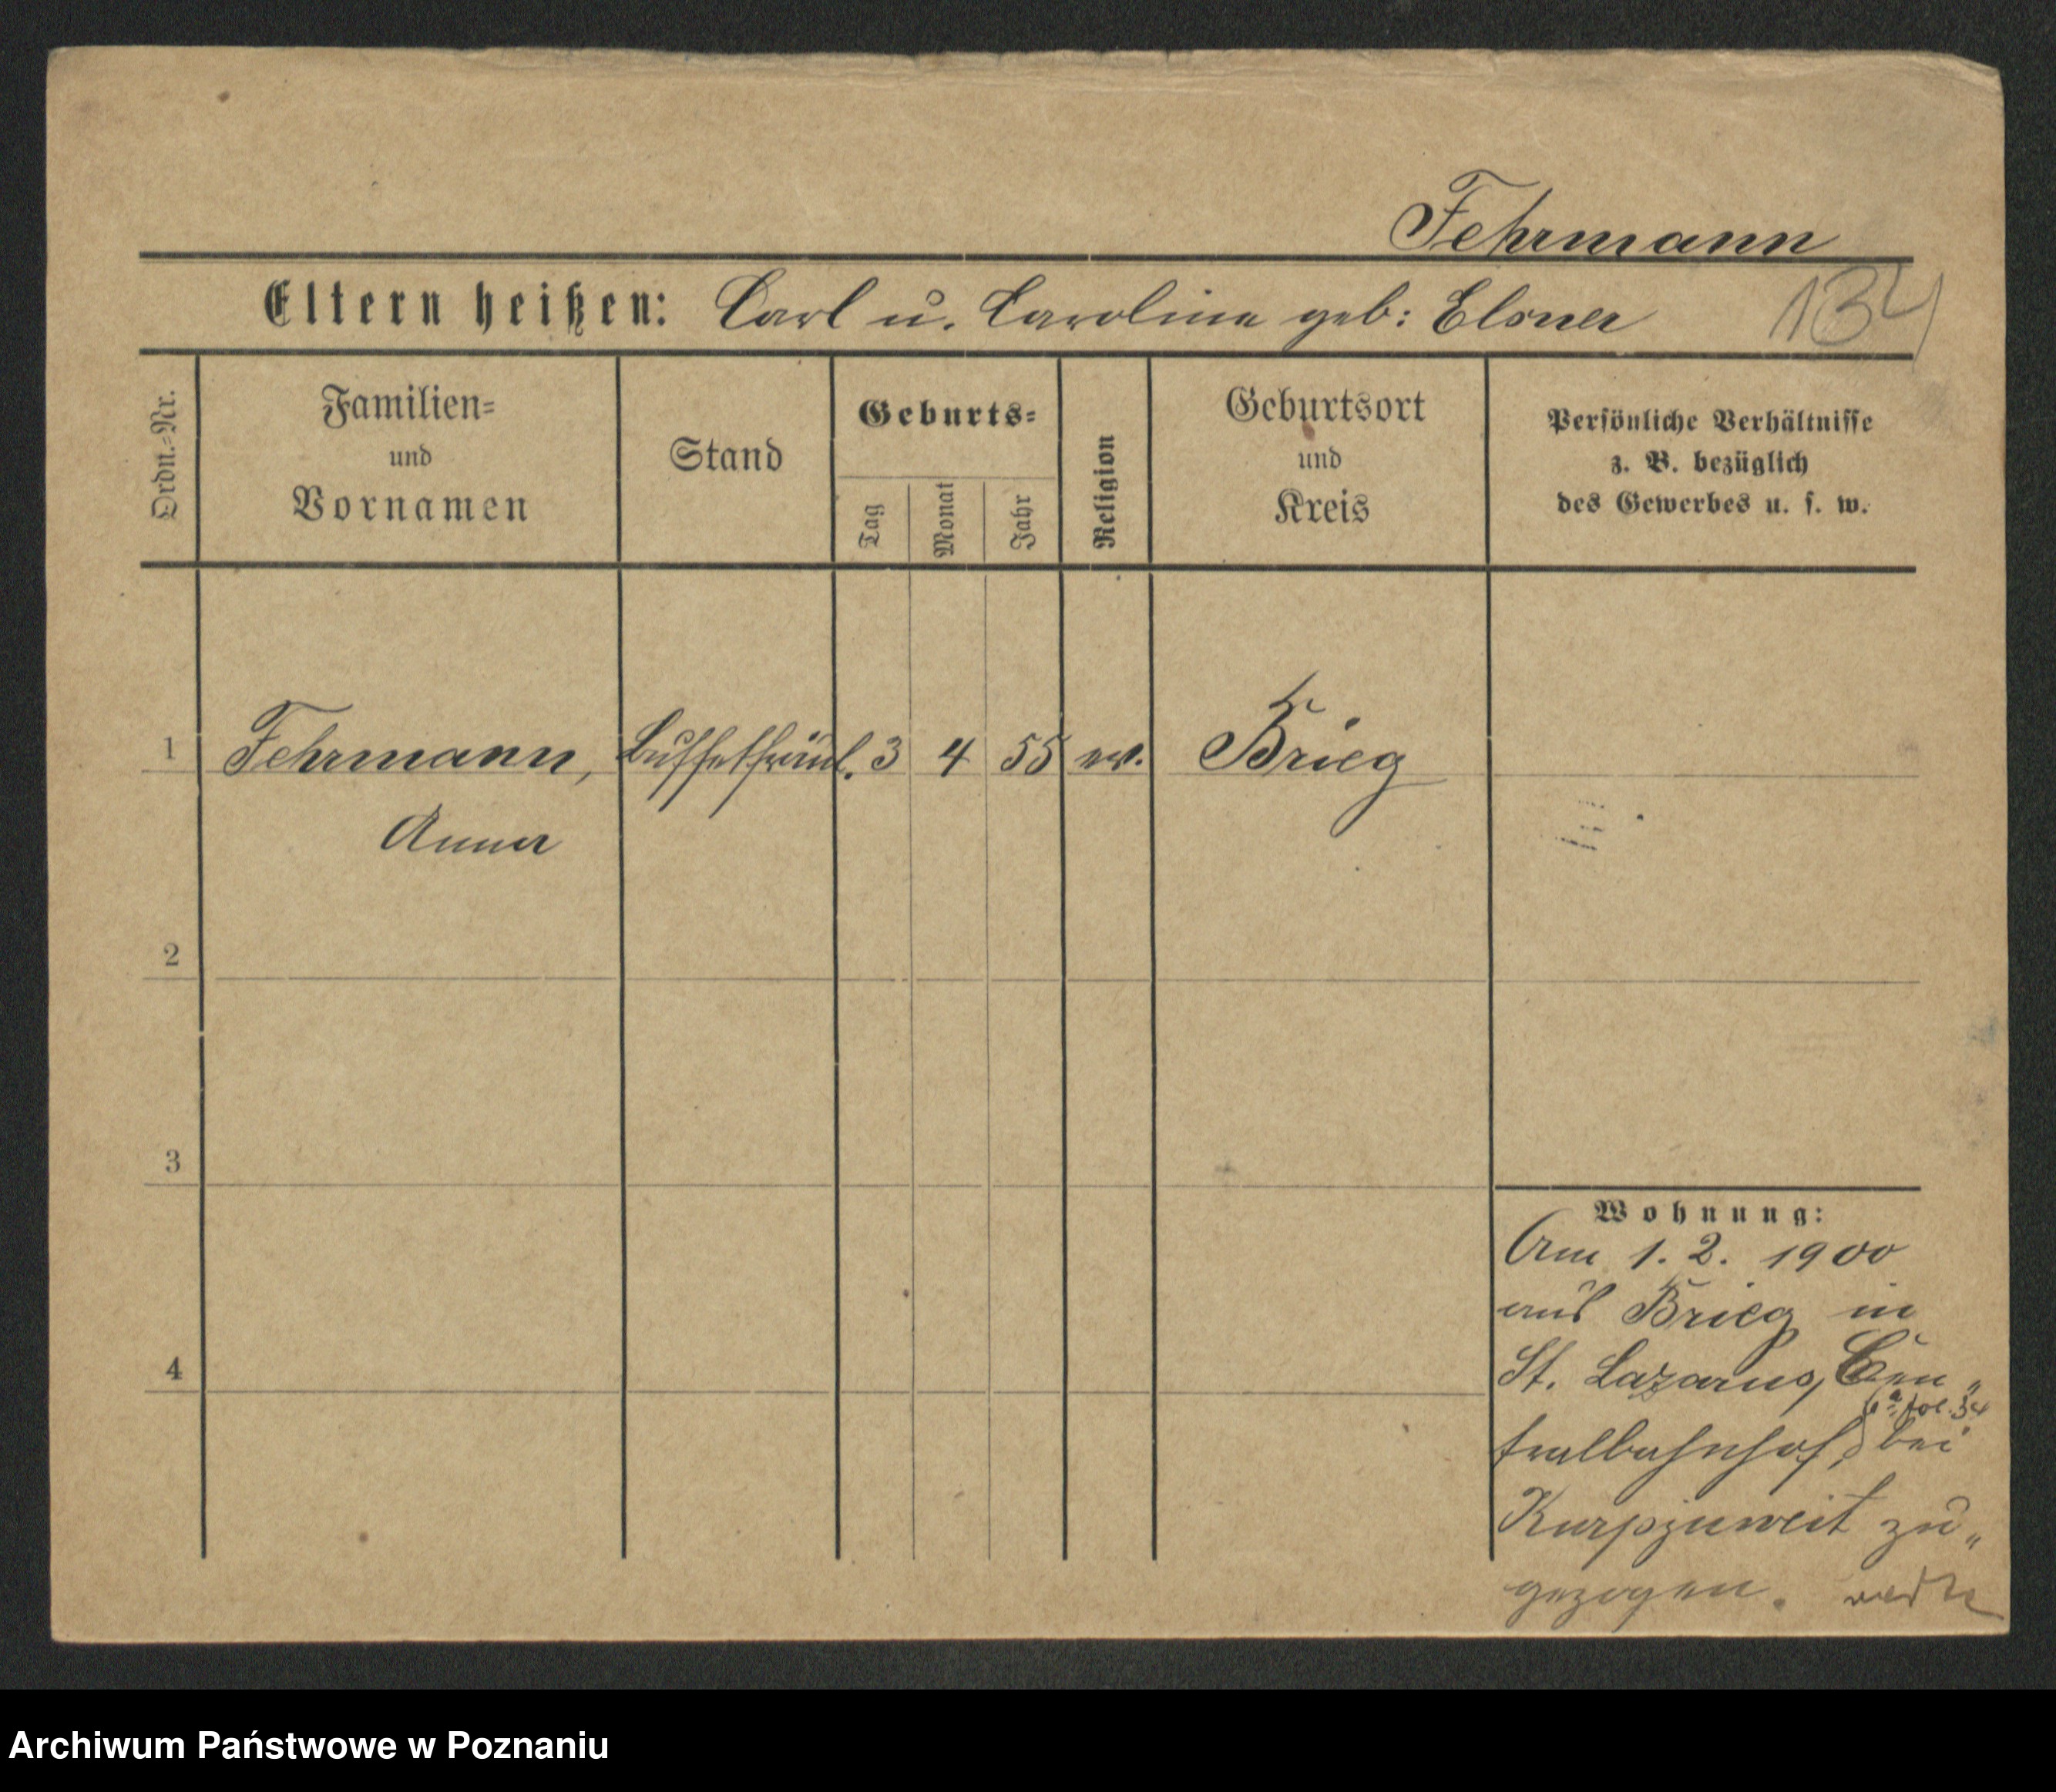 Fehrmann
Eltern heißen: Carl u. Caroline geb: Elsner
134
Ordn.=Nr.
Familien=
und
Vornamen
Stand
Geburts=
Tag
Monat
Jahr
Religion
Geburtsort
und
Kreis
Persönliche Verhältnisse
z. B. bezüglich
des Gewerbes u. s. w.
1 Fehrmann, Buffetfräul. 3 4 55 ev. Brieg
Anna
2
3
4
Wohnung:
Am 1. 2. 1900
aus Brieg in
St. Lazarus, Cen„
tralbahnhof, bei
Kurpjuweit zu„
gezogen.
Archiwum Państwowe w Poznaniu